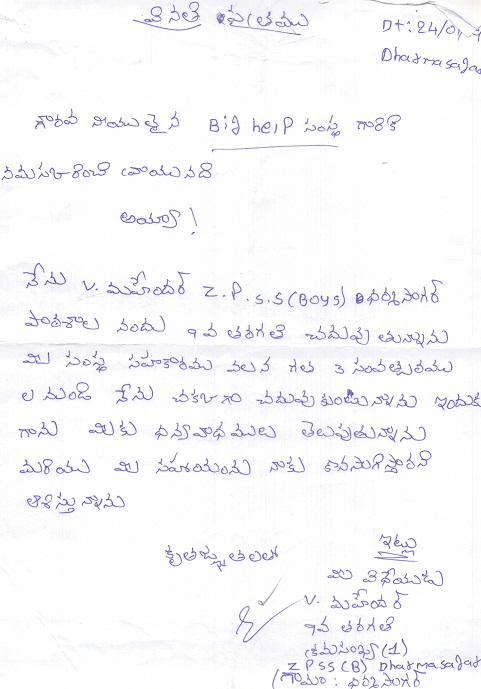 వినతి పత్రము
Dt: 24/0
Dharmasagar
గౌరవ నీయులైన Big help సంస్థ గారికి
నమస్కరించి వ్రాయునది
అయ్యా!
నేను V. మహేందర్ Z.P.S.S (Boys) ధర్మసాగర్
పాఠశాల నందు 9వ తరగతి చదువుతున్నాను
మీ సంస్థ సహకారము వలన గత 3 సంవత్సరము
ల నుండి నేను చక్కగా చదువుకుంటున్నాను ఇందుకు
గాను మీకు ధన్యవాదములు తెలుపుతున్నాను
మరియు మీ సహాయంను నాకు కొనసాగిస్తారని
ఆశిస్తున్నాను
కృతజ్ఞతలతో
ఇట్లు
మీ విధేయుడు
V. మహేందర్
9వ తరగతి
క్రమసంఖ్య (1)
ZPSS (B) Dharmasagar
గ్రామం : ధర్మసాగర్